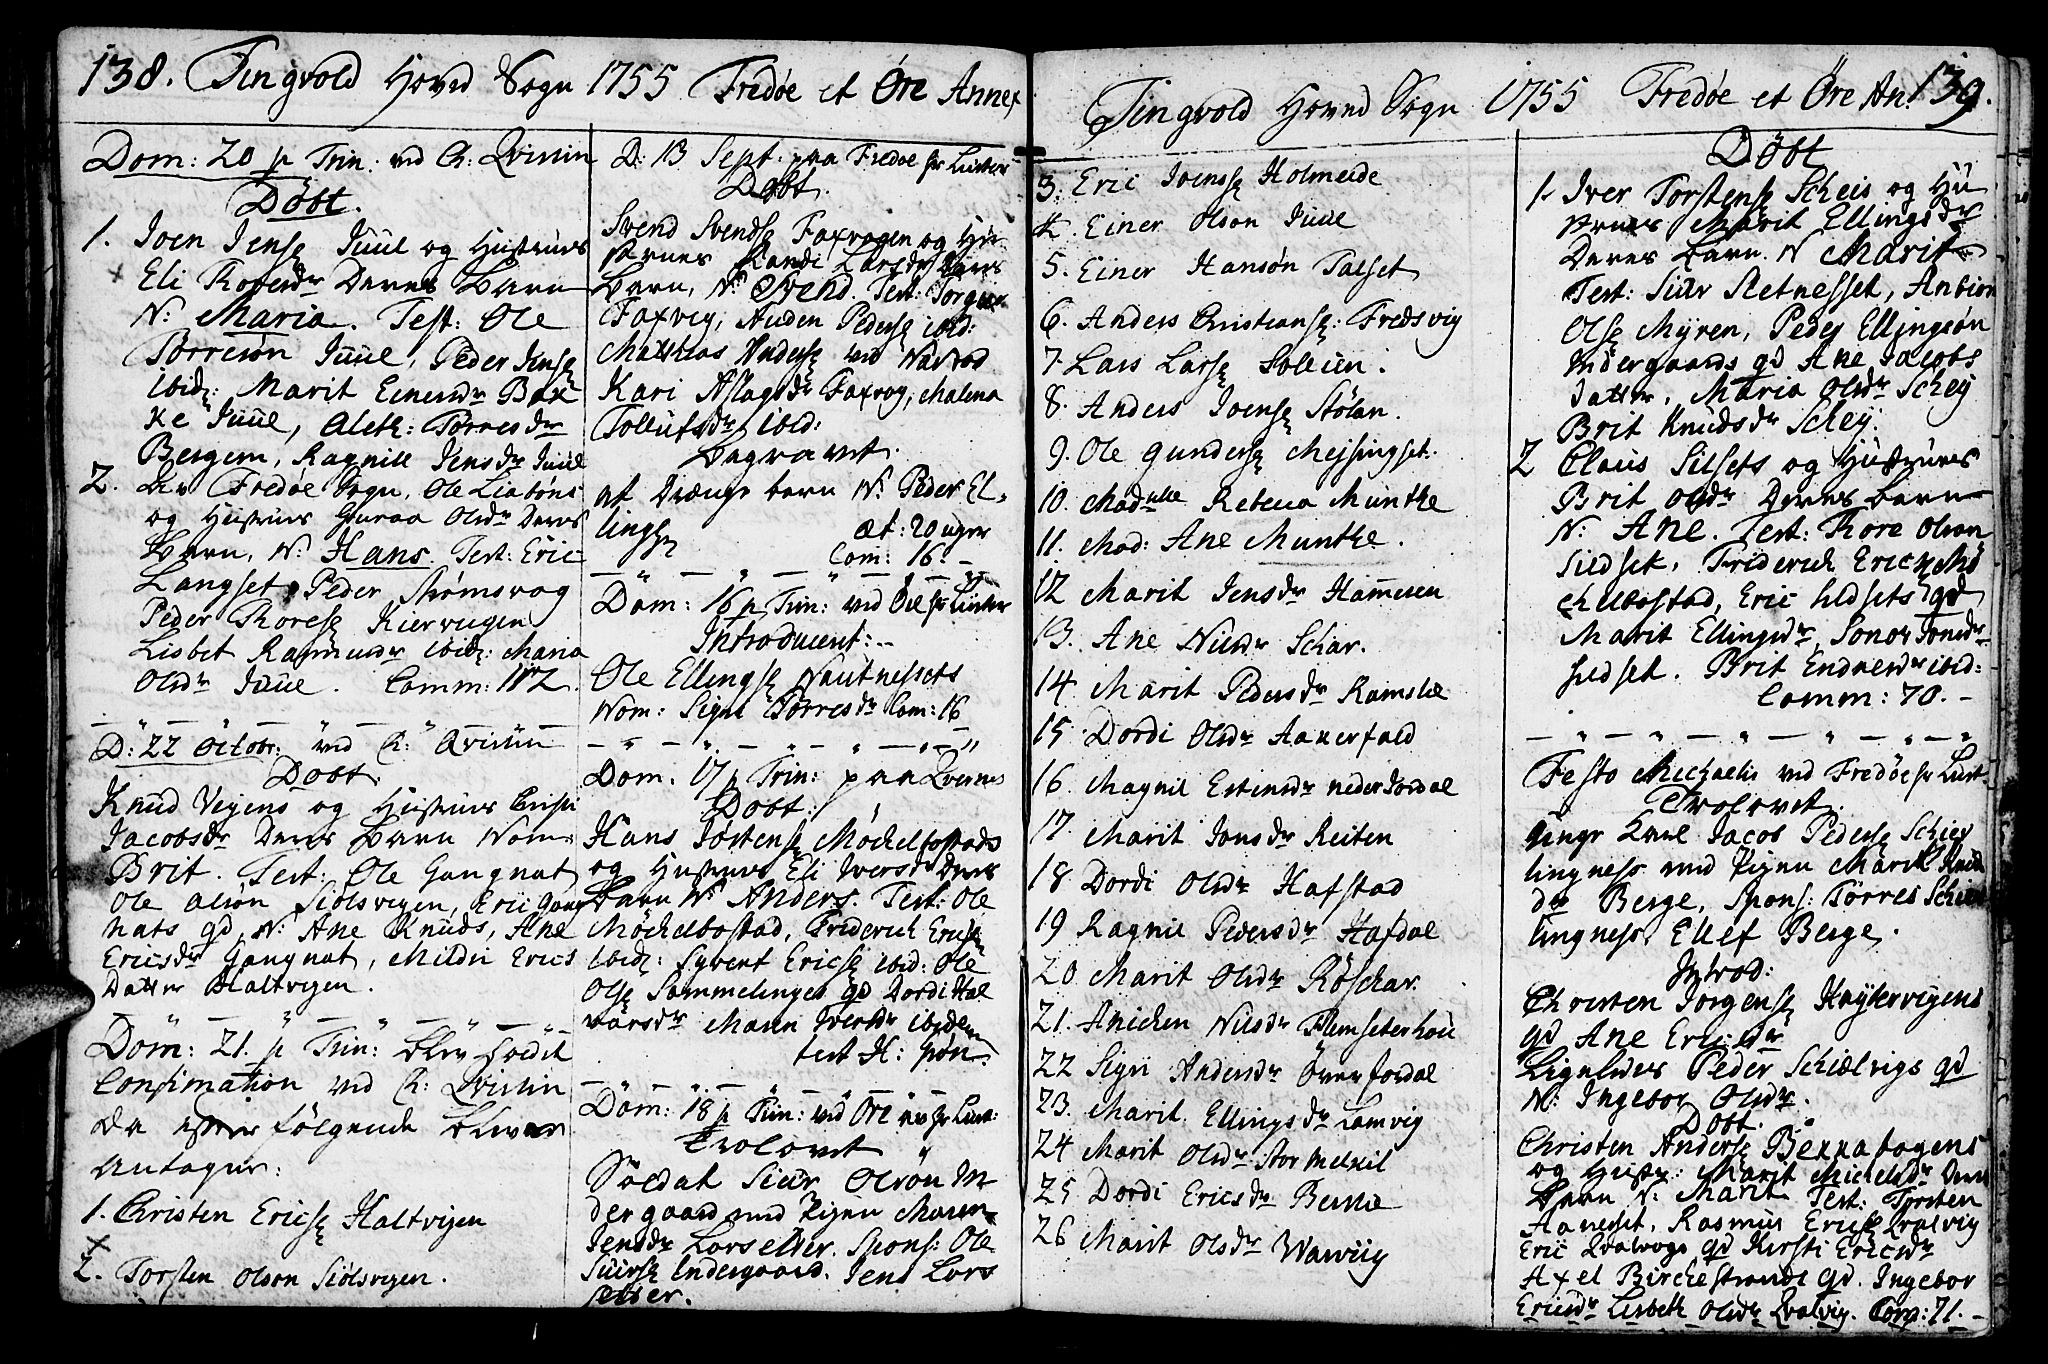 138. Tingvold Hoved Sogn 1755 Fredøe et Øre Annex
Dom: 20 p Trin: ved Ch: Qvislin
Döbt.
1. Joen Jensø Juul og Hustrues
Eli Roersdr Deres Barn
N: Maria. Test: Ole
Törresön Juul, Peder Jensø
ibid: Marit Einersdr Bax
ke Juul, Aleth: Törresdr
Bergem, Ragnill Jensdr Juul
2. Af Fredøe Sogn, Ole Liabøns
og Hustrues Guraa Olsdr Deres
Barn, N: Hans. Test: Eric
Langset, Peder Strömsvog
Peder Thoresø Kiervugen
Lisbet Rasmusdr ibid: Maria
Olsdr Juul. Comm: 112.
D: 22 Octobr: ved Ch: Qvislin
Dobt.
Knud Vejens og Hustrues Cristi
Jacobsdr Deres Barn Nom:
Brit. Test: Ole Gangnat
Ole Olsön Siölsvigen, Eric Gang
nats qd, N: Ane Knuds, Ane
Ericsdr Gangnat, Mildri Erics
Datter Haltvigen.
Dom: 21. p Trin: blev holdt
Confirmation ved Ch: Qvislin
da efter følgende bleven
Antagne:
1. Christen Ericsø Haltvigen
2. Torsten Olson Siölsvigen.
D: 13 Sept. paa Fredøe hr Linther
Dobt.
Svend Svendsø Faxvogen og Hu
struens Randi Larsdr Deres
Barn, N: Svend. Test: Jorgen
Faxvog, Auden Pedersø ibid:
Matthias Andersø ved
Kari Aslagsdr Faxvog, Malena
Tollufsdr ibid:
Begravet.
et Drænge barn N: Peder El,
lingsø æt: 20 uger
Com: 16. -
Dom: 16 p Trin: ved Øre hr Linther
Introduceret: -
Ole Ellingsø Nautnessets
Nom: Signi Törresdr Com: 16
Dom. 17 p Trin: paa Qvernes
Dobt.
Hans Jostensø Möchelbostads
og Hustrues Eli Iversdr Deres
Barn N: Anders. Test: Ole
Möckelbostad, Friderich Ericsø
ibid: Syvert Ericsø ibid: Ole
Olsø Sammelinges qd Dordi Hal
vorsdr Maren Iversdr ibidem
test H: spön.
Dom: 18 p Trin: ved Øre av hr Lint:
Trolovet
Soldat Siur Olsön In
dergaard med Pigen Maren
Jensdr Lorsetter. Spons: Ole
Siursø Endergaard. Jens Lors
setter.
Tingvold Hoved Sogn 1755 Fredøe et Øre An: 139.
3. Eric Joensø Holmeide
4. Einer Olson Juul
5. Einer Hansön Talset
6. Anders Christiansø: Fredsvig
7. Lars Larsø Solliin.
8. Anders Joensø Stölan.
9. Ole Gundersø Mejsingset.
10. Madmlle Rebecca Munthe
11. Mad: Ane Munthe.
12 Marit Jensdr Hammeren
13. Ane Nilsdr Schar.
14 Marit Pedersdr Ramslie
15. Dordi Olsdr Aauerfald
16 Magnil Estensdr neder Jordal
17. Marit Jonsdr Reiten
18 Dordi Olsdr Hafstad
19 Ragnil Pedersdr Hafdal
20 Marit Olsdr Röschar.
21. Anichen Nilsdr Flemseterhoü
22 Signi Andersdr Över Jordal
23. Marit Ellingsdr Lamvig
24 Marit Olsdr Stormelkil
25 Dordi Ericsdr Berslie
26 Marit Olsdr Warviig
Döbt
1. Iver Torstensø Scheis og Hu
struens Marit Ellingsdr
Deres Barn. N Marit
Test: Siur Retnesset, Anbion
Olsø Myren, Peder Ellingsön
Indergaards qd Ane Jacobs
datter, Maria Olsdr Schey
Brit Knudsdr Schey.
2 Claus Silsets og Hustrues
Brit Olsdr Deres Barn
N: Ane. Test: Thore Olson
Sildset, Friderich Ericsø Mö
chelbostad, Eric Sildsets qd
Marit Ellingsdr, Jonsdr
Sildset. Brit Endresdr ibid:
Comm: 70. -
Festo Michaelis ved Fredøe hr Lint.
Trolovet.
Unge Karl Jacob Pedersø Schiey
lingness med Pigen Marit Knud
dr Berge, Spons: Törres Schiel
lingness, Ellef Berge.
Introd:
Christen Jorgensø Knytervigens
qd Ane Ericsdr
Ligeledes Peder Schielvigs qd
N: Ingebor Olsdr.
Dobt.
Christen Andersø Berkatogens
og Hustr: Marit Michelsdr Deres
Barn N: Marit Test: Torsten
Aanesset, Rasmus Ericsø Qvalvig
Eric Qvalvogs qd Kirsti Ericsdr
Axel Birchestrands qd. Ingebor
Ericsdr Lisbeth Olsdr Qvalvig. Com: 71. -